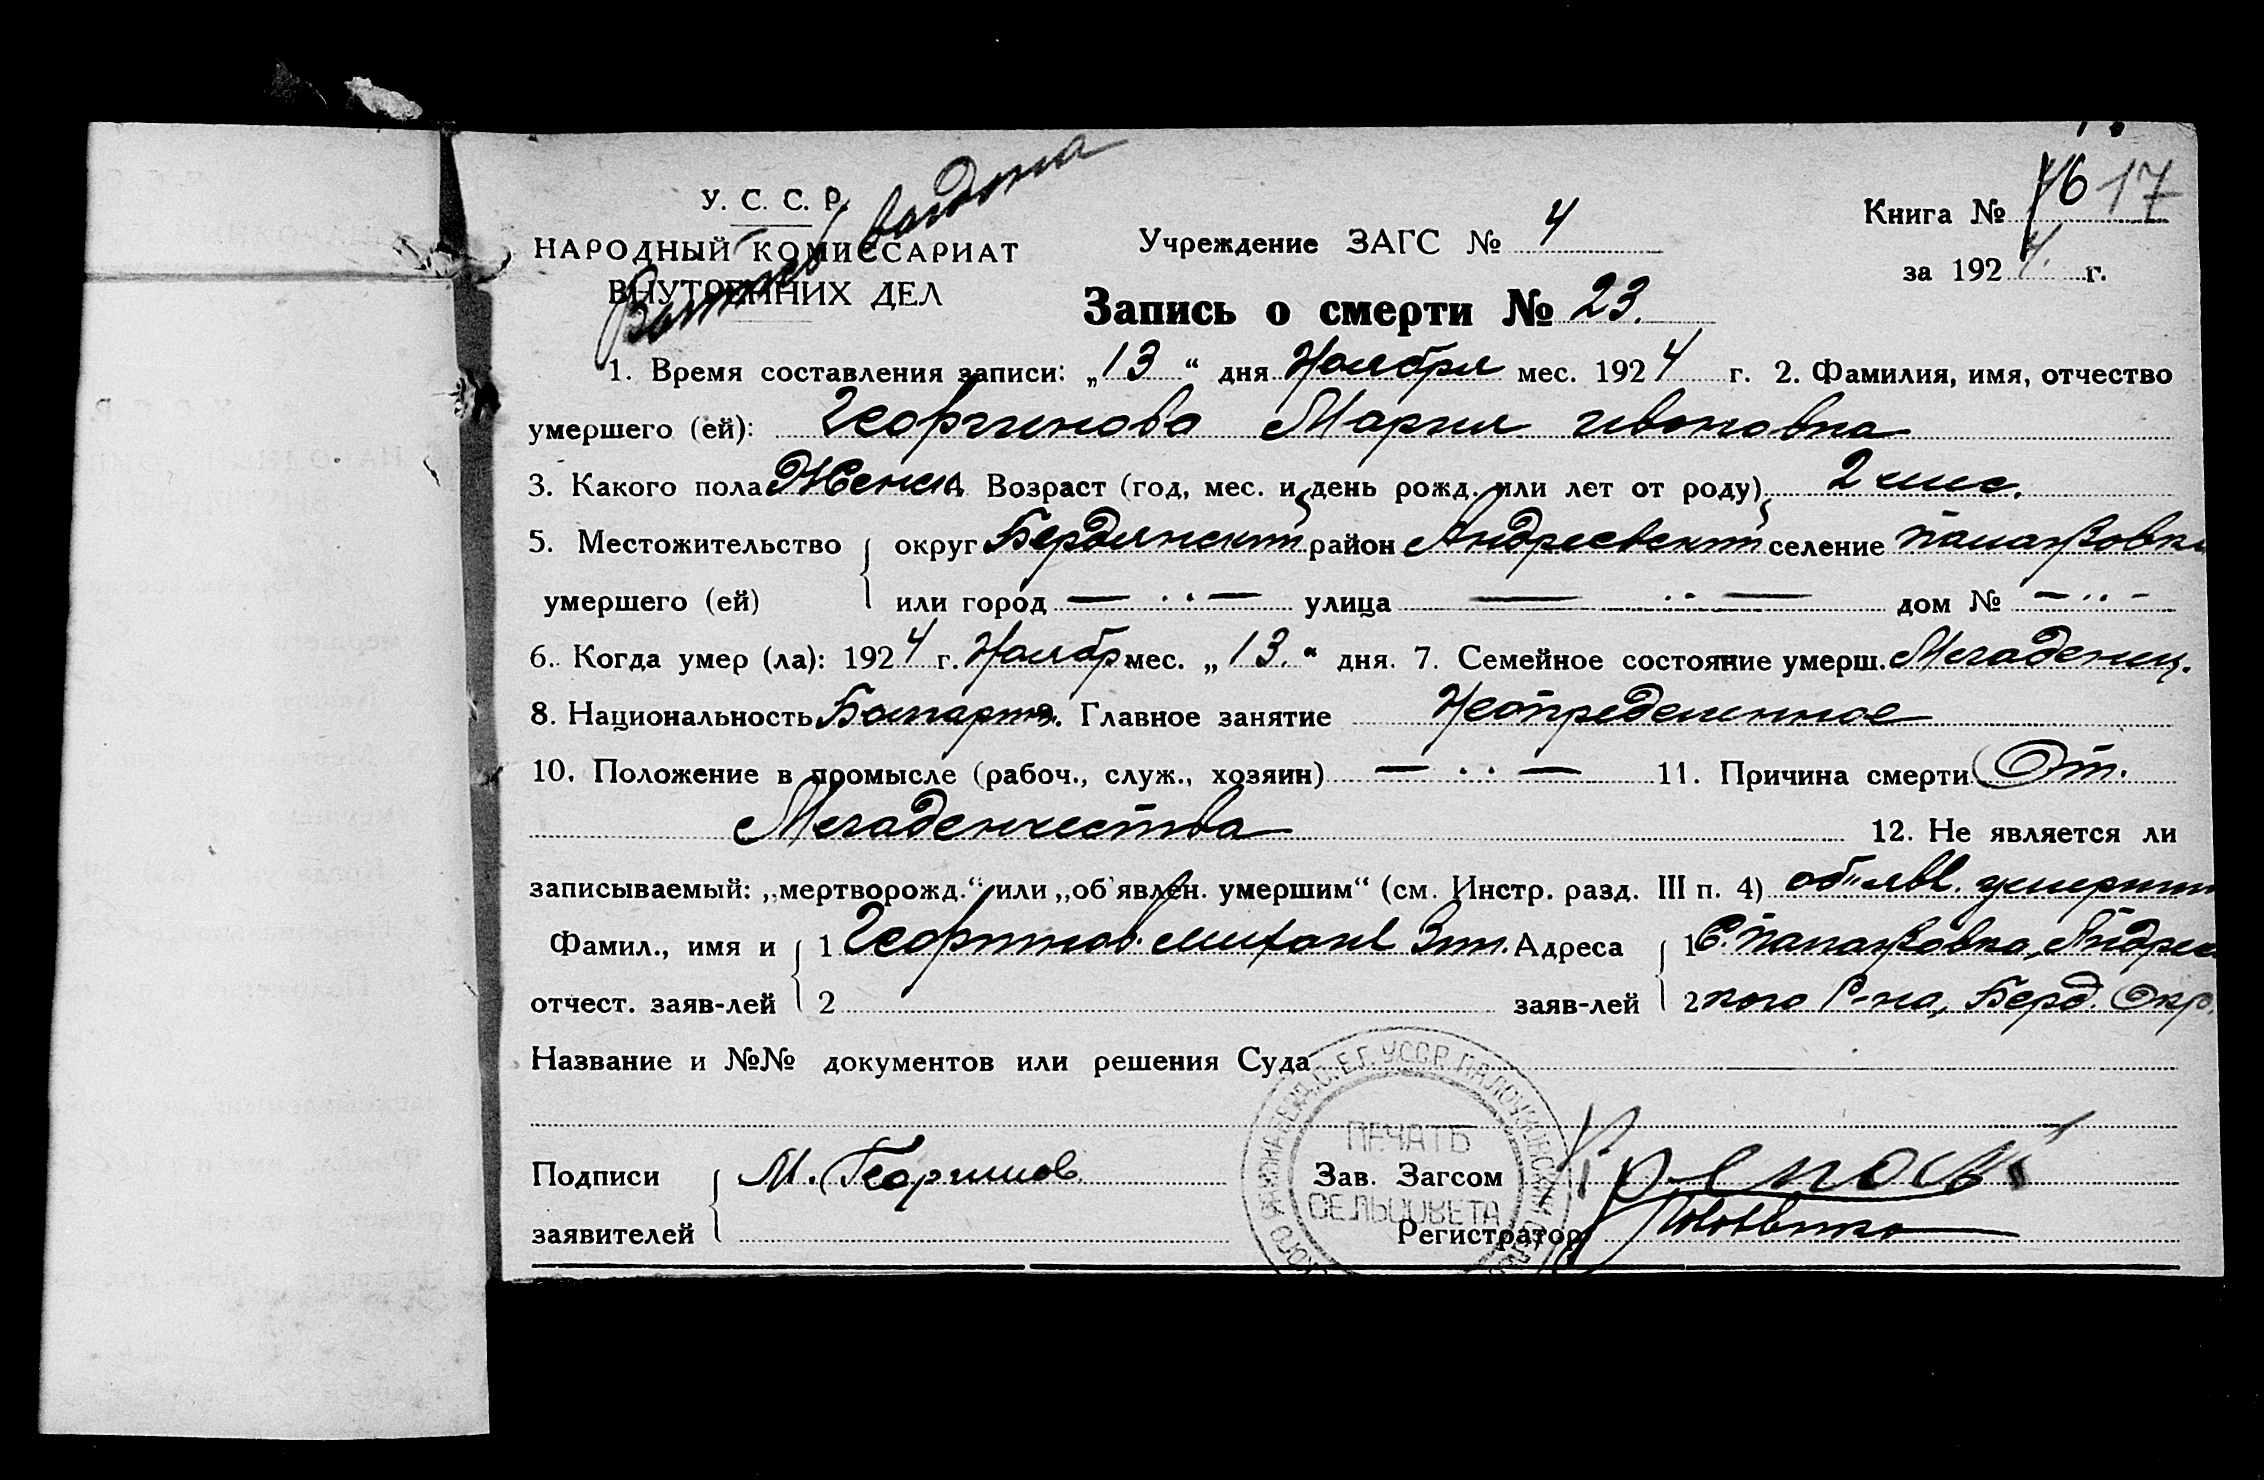 У. С. С. Р.
НАРОДНЫЙ КОМИССАРИАТ
ВНУТРЕННИХ ДЕЛ
Учреждение ЗАГС № 4
Книга № 16 17
за 1924. г.
Запись о смерти № 23.
1. Время составления записи: „13“ дня Ноября мес. 1924 г. 2. Фамилия, имя, отчество
умершего (ей): Георгинова Мария ивановна
3. Какого пола Женск. 4. Возраст (год, мес. и день рожд. или лет от роду) 2 мис.
5. Местожительство округ Бердянский район Андреевский селение
умершего (ей) или город — ·· — улица — ·· — дом № — ·· -
6. Когда умер (ла): 1924 г. Ноябр мес. „13.“ дня. 7. Семейное состояние умерш. Младенец.
8. Национальность Болгарт. 9. Главное занятие Неопределенное
10. Положение в промысле (рабоч., служ., хозяин) — ·· — 11. Причина смерти От.
Младенчества 12. Не является ли
записываемый: „мертворожд.“ или „об'явлен. умершим“ (см. Инстр. разд. III п. 4) об"явл. умершим
Фамил., имя и 1 Михаил Адреса 1 С.
отчест. заяв-лей 2 заяв-лей 2 кого Р-на, Берд. Окр.
Название и №№ документов или решения Суда
Подписи М. Георгинов
заявителей
Зав. Загсом
Регистратор
ПЕЧАТЬ
СЕЛЬСОВЕТА